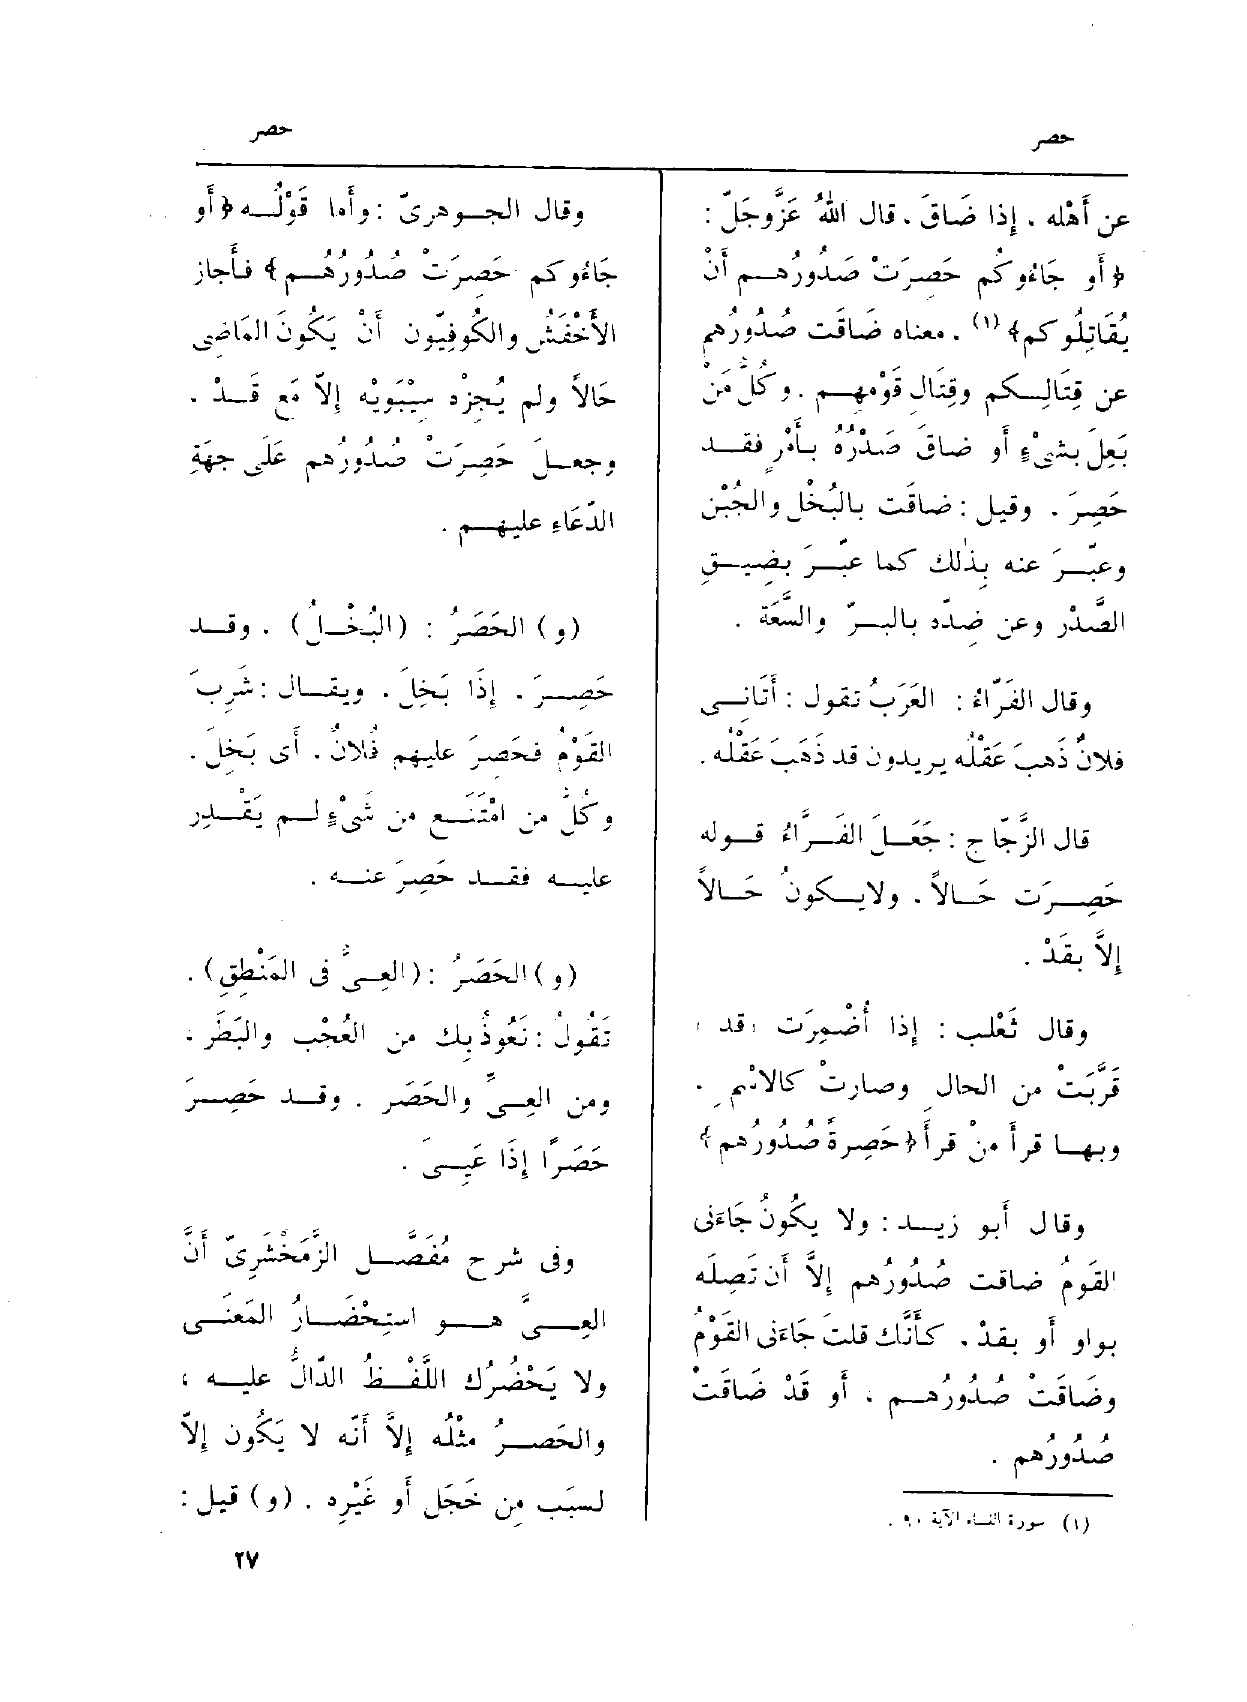 حصر
حصر
عن أَهْله . إِذا ضَاقَ . قال اللهُ عَزَّوجَلّ :
﴿ أَو جَاءُوكُم حَصِرَتْ صُدُورُهم أَنْ
يُقَاتِلُوكم﴾ (١) . معناه ضَاقَت صُدُورُهم
عن قِتَالِكم وقِتَالِ قَوْمهم . وكُلُّ مَنْ
بَعِلَ بشىْءٍ أَو ضاقَ صَدْرُهُ بأَمْرٍ فقد
حَصِرَ . وقيل : ضاقَت بالبُخْل والجُبْن
وعبّرَ عنه بِذٰلك كما عبّرَ بضِيقِ
الصَّدْر وعن ضِدّه بالبرّ والسَّعَة .
وقال الفَرّاءُ : العَرَبُ تقول : أَتَانِى
فلانٌ ذَهبَ عَقْلُه يريدون قد ذَهَبَ عَقْلُه .
قال الزّجّاج : جَعَلَ الفَرّاءُ قوله
حَصِرَت حَالاً . ولايكونُ حَالاً
إِلاَّ بقَدْ .
وقال ثَعْلب : إِذا أُضْمِرَت «قد»
قَرَّبَتْ من الحالِ وصارتْ كالاسْمِ .
وبها قرأَ مَنْ قرأَ ﴿حَصِرةً صُدُورُهم﴾
وقال أَبو زيد : ولا يكُونُ جَاءَنى
القَومُ ضاقت صُدُورُهم إِلاَّ أَن تَصِلَه
بواو أَو بقدْ . كأَنَّك قلتَ جَاءَنى القَوْمُ
وضَاقَتْ صُدُورُهم ، أَو قَدْ ضَاقَتْ
صُدُورُهم .
(١) سورة النساء الآية ٩٠ .
وقال الجوهرىّ : وأَما قَوْلُه ﴿أَو
جَاءُوكم حَصِرَتْ صُدُورُهُم﴾ فأَجاز
الأَخْفَشُ والكُوفِيّون أَنْ يَكُونَ المَاضِى
حَالاً ولم يُجِزْه سِيْبَوَيْه إِلاّ مَع قَدْ .
وجعلَ حَصِرَتْ صُدُورُهم عَلَى جِهَةِ
الدّعَاءِ عليهم .
(و) الحَصَرُ : (البُخْلُ) . وقد
حَصِرَ . إِذَا بَخِلَ . ويقال : شَرِبَ
القَوْمُ فحَصِرَ عليهم فُلانٌ . أَى بَخِلَ .
وكُلُّ من امْتَنَع من شَىْءٍ لم يَقْدِر
عليه فقد حَصِرَ عنه .
(و) الحَصَرُ : (العِىُّ فى المَنْطِقِ) .
تَقُولُ : نَعُوذُ بِك من العُجْب والبَطَر .
ومن العِىِّ والحَصَر . وقد حَصِرَ
حَصَرًا إِذَا عَيِىَ .
وفى شرح مُفَصَّل الزَّمَخْشَرِىّ أَنَّ
العِىَّ هو استِحْضَارُ المَعنَى
ولا يَحْضُرُك اللَّفْظُ الدّالُّ عليه ،
والحَصرُ مثْلُه إِلاَّ أَنّه لا يَكُون إِلاّ
لسبَب مِن خَجَل أَو غَيْرِه . (و) قيل :
٢٧